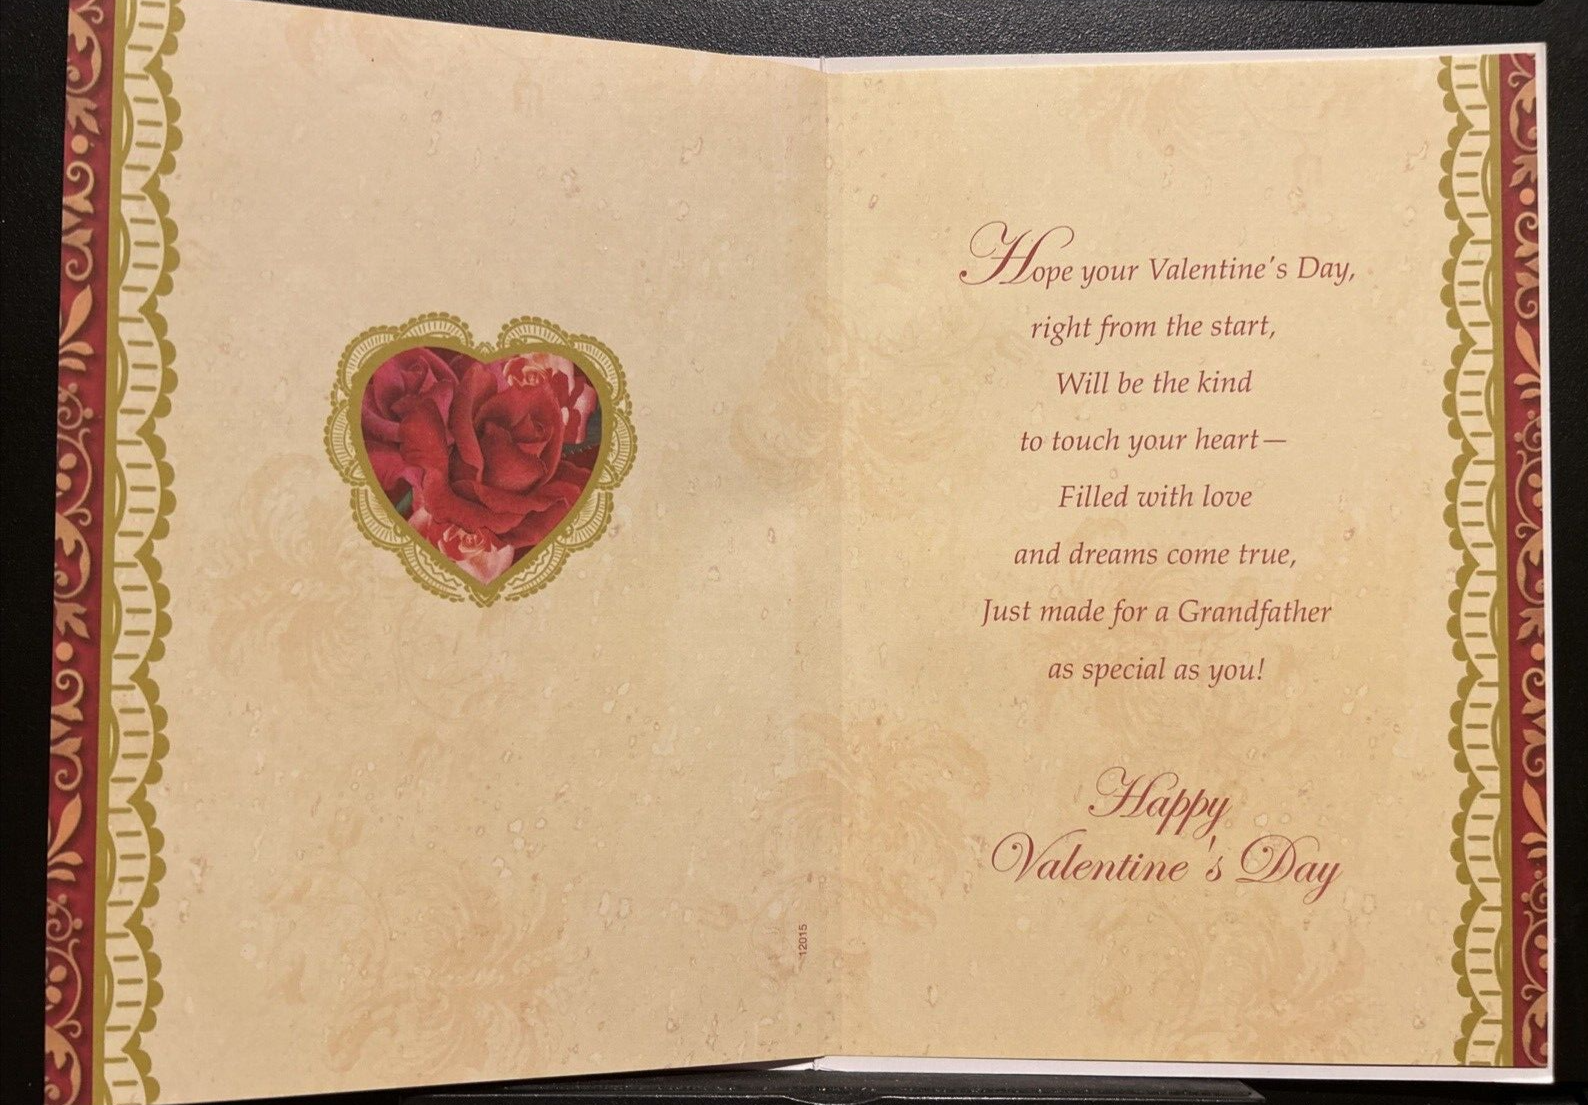 Hope your Valentine's Day,
right from the start,
Will be the kind
to touch your heart—
Filled with love
and dreams come true,
Just made for a Grandfather
as special as you!
Happy
Valentine's Day
12015